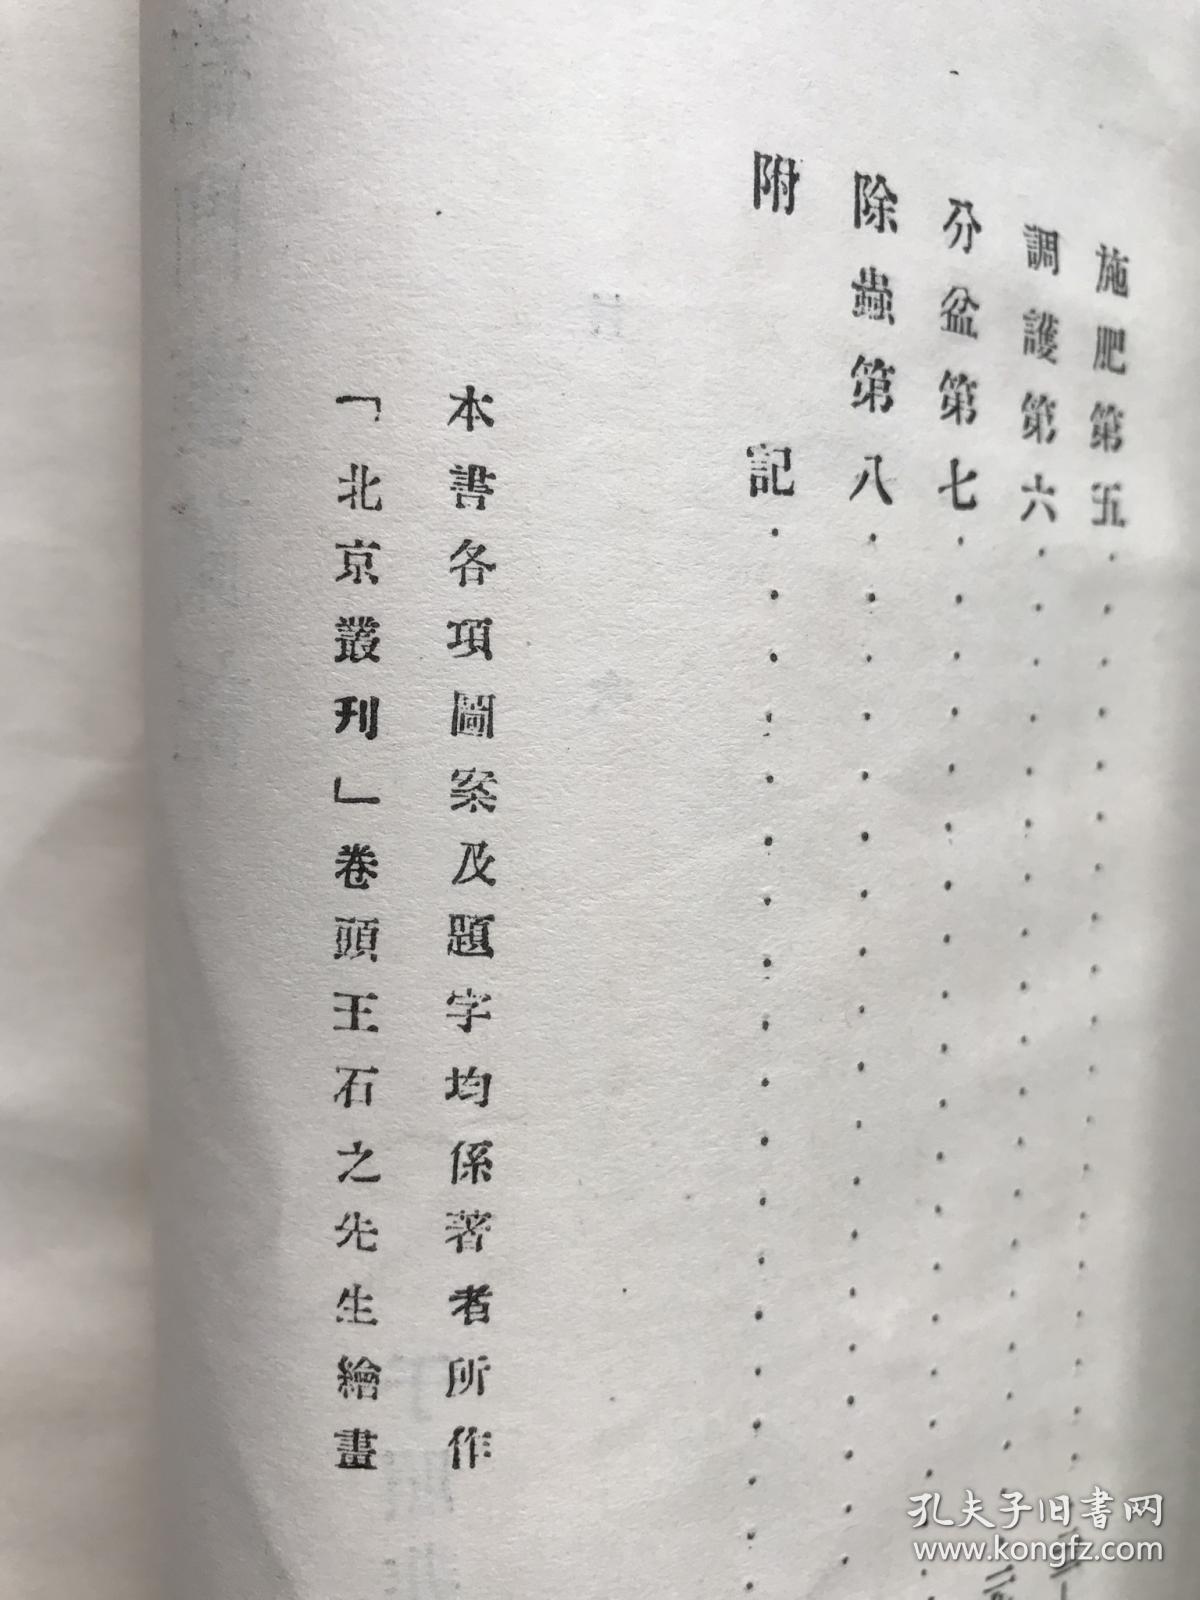 施肥第五
調護第六
分盆第七
除蟲第八
附記
本書各項圖案及題字均係著者所作
「北京叢刊」卷頭王石之先生繪畫
孔夫子旧书网
www.kongfz.com